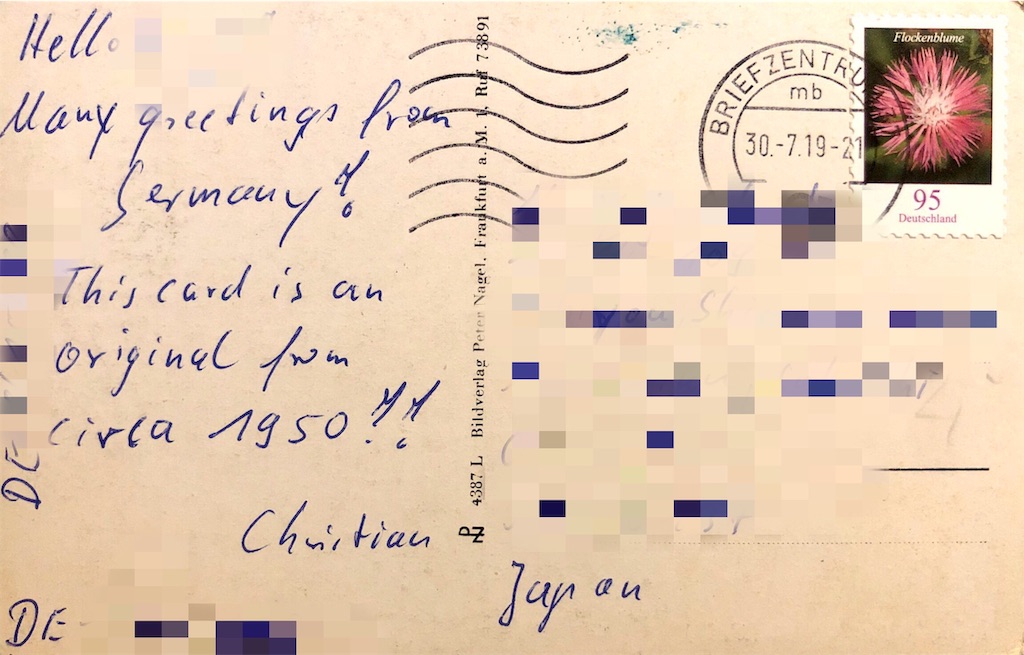 Hello
Many greetings from
Germany!
This card is an
original from
circa 1950!!
Christian
DE
DE
4387 L Bildverlag Peter Nagel, Frankfurt a. M. 1, Ruf 73891
PN
BRIEFZENTRU
mb
30.-7.19-21
Flockenblume
95
Deutschland
Japan